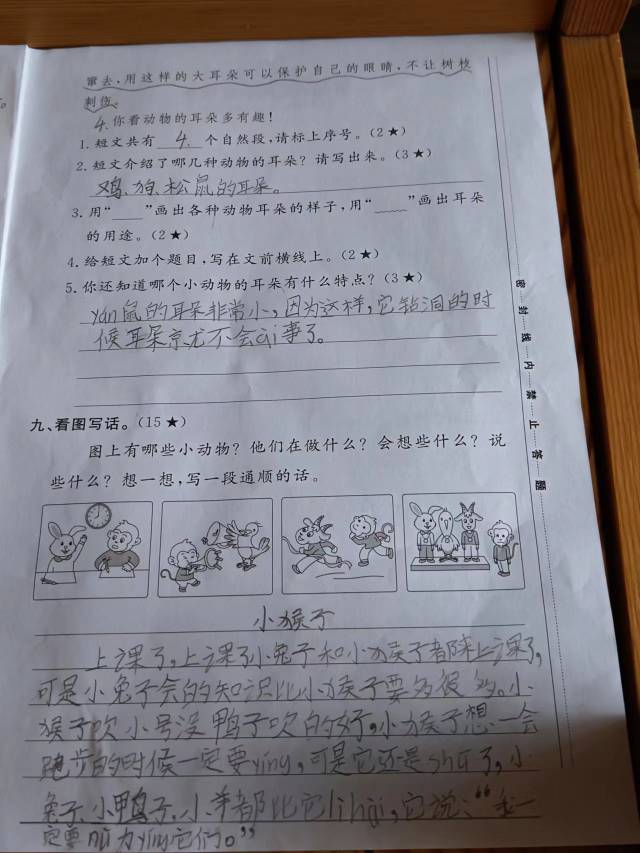 雷去,用这样的大耳朵可以保护自己的眼睛,不让树枝
刺伤。
4.你看动物的耳朵多有趣!
1. 短文共有 4. 个自然段,请标上序号。(2★)
2. 短文介绍了哪几种动物的耳朵?请写出来。(3★)
鸡、狗、松鼠的耳朵。
3. 用“____”画出各种动物耳朵的样子,用“﹏﹏”画出耳朵
的用途。(2★)
4. 给短文加个题目,写在文前横线上。(2★)
5. 你还知道哪个小动物的耳朵有什么特点?(3★)
yǎn鼠的耳朵非常小,因为这样,它钻洞的时
候耳朵就不会ài事了。
九、看图写话。(15★)
图上有哪些小动物?他们在做什么?会想些什么?说
些什么?想一想,写一段通顺的话。
小猴子
上课了,上课了小兔子和小猴子都来上课了,
可是小兔子会的知识比小猴子要多很多。小
猴子吹小号没鸭子吹的好。小猴子想一会
跑步的时候一定要yíng,可是它还是shū了,小
兔子、小鸭子、小羊都比它lìhài,它说:“我一
定要努力yíng它们。”
密封线内禁止答题